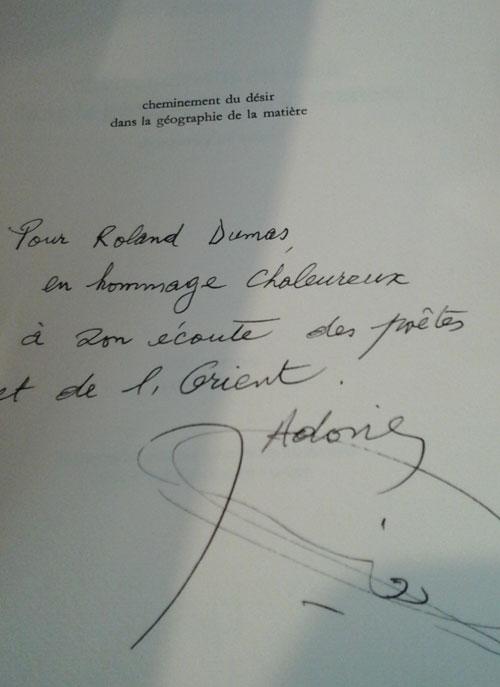 cheminement du désir
dans la géographie de la matière
Pour Roland Dumas,
en hommage chaleureux
à son écoute des poètes
et de l'Orient.
Adonis